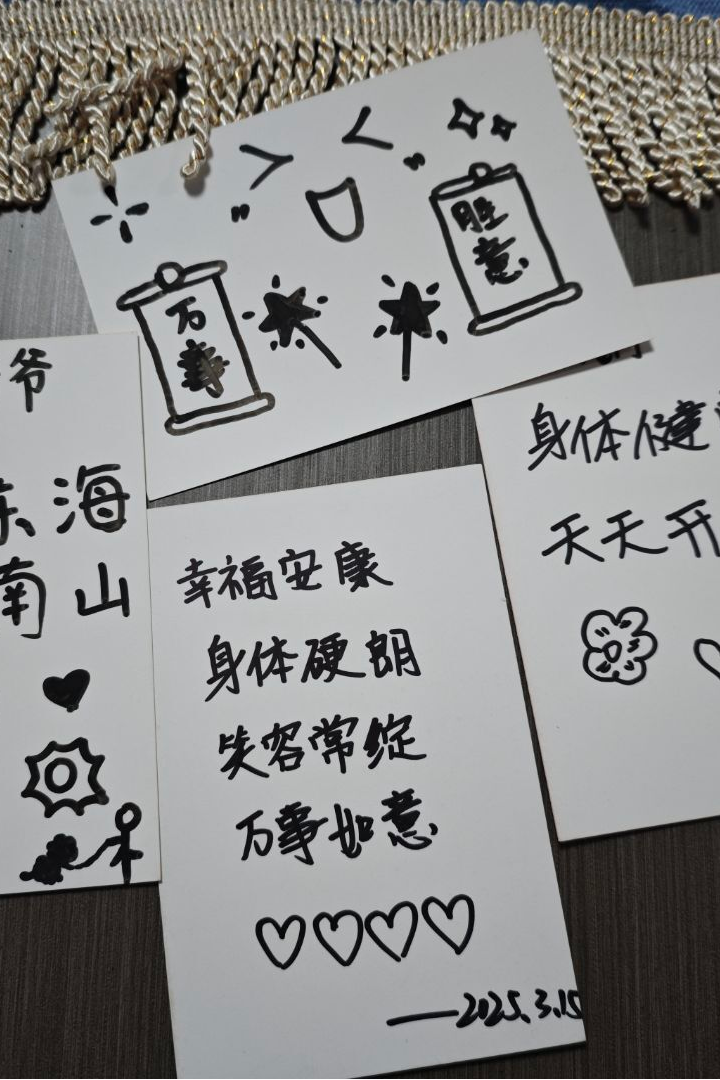 万事
胜意
爷
东海
南山
幸福安康
身体硬朗
笑容常绽
万事如意
——2025.3.15
身体健
天天开